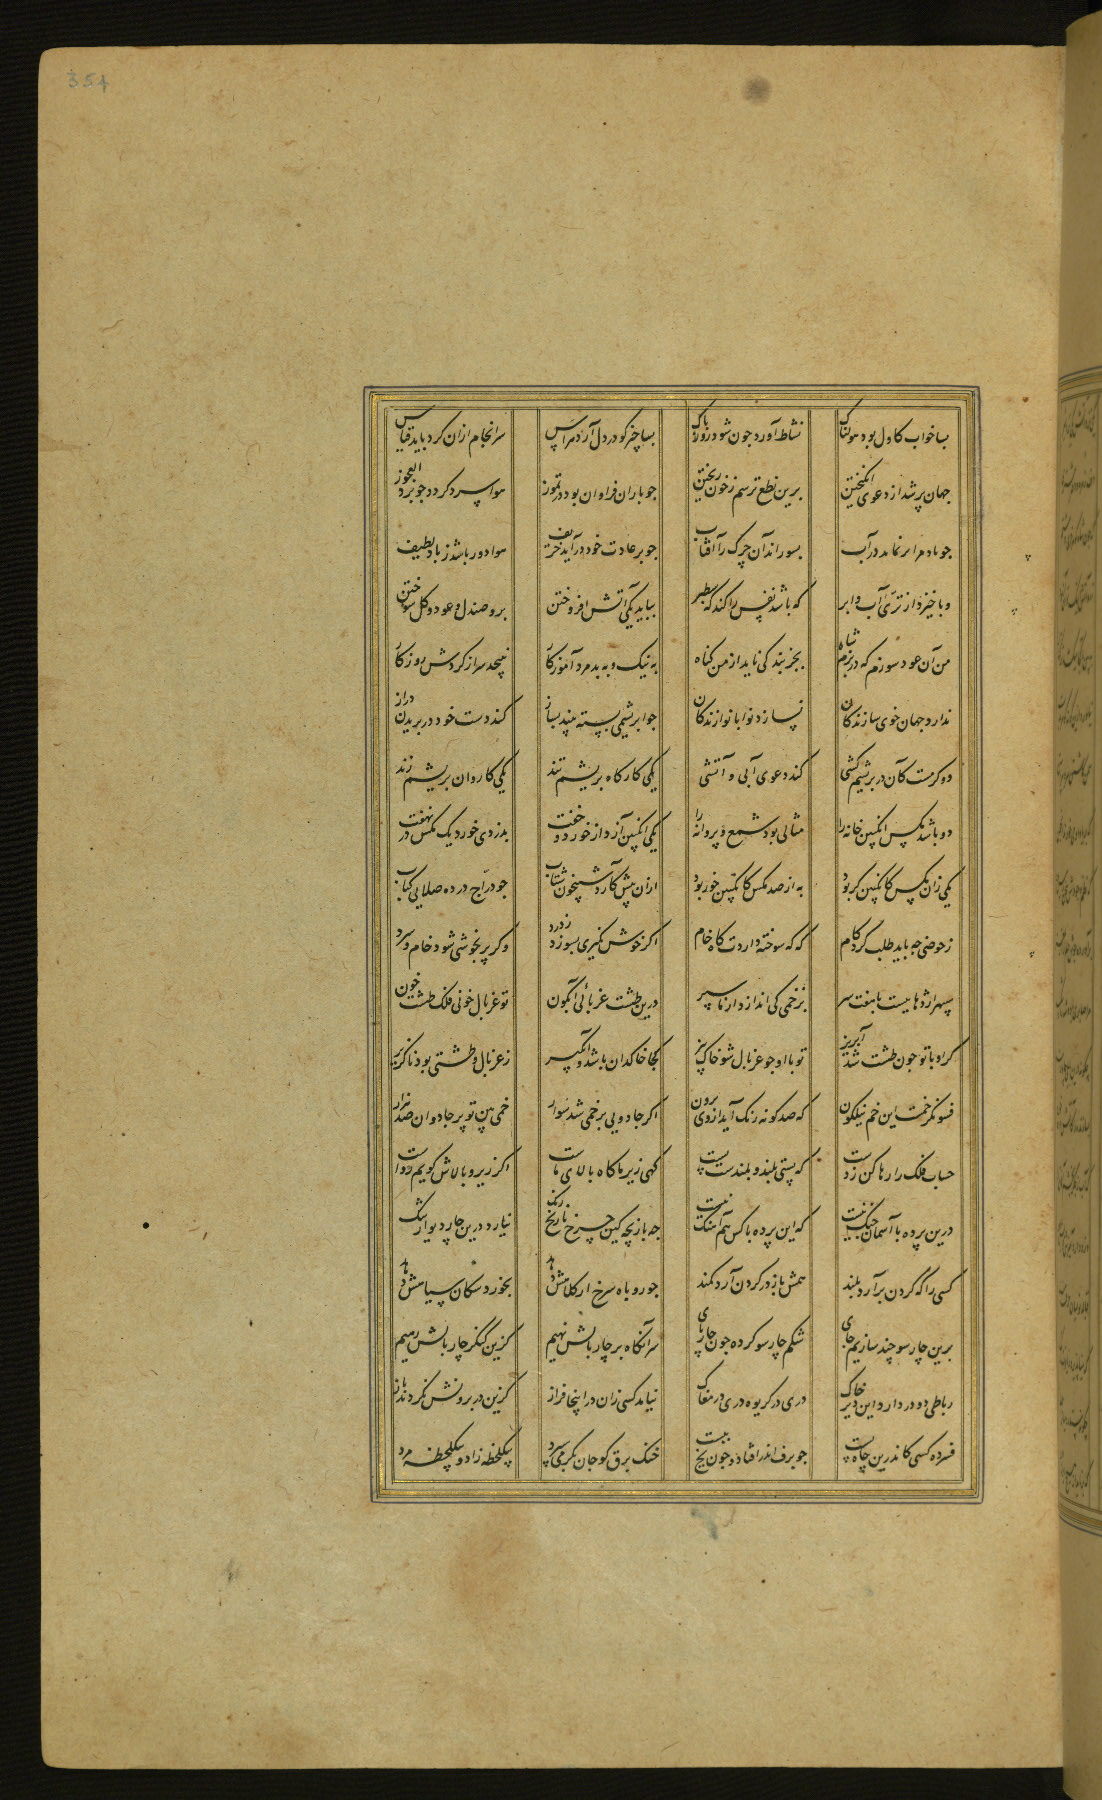 بسا خواب کاول بود هولناک نشاط آورد جون شود روز پاک بسا چیز کو در دل آرد هراس سرانجام ازان کرد باید قیاس
جهان پر شد از دعوی انکیختن برین نطع ترسم ز خون ریختن جو باران فراوان بود در تموز هوا سرد کردد جو برد العجوز
جو باد هر ابر نماید در آب بسوراند آن چرک را آفتاب جو بر عادت خود درآید خریف هوا دور باشد ز باد لطیف
وبا خیزد از تریّ آب و ابر که باشد نفس را کند که سطبر بباید یکی آتش افروختن برو صندل و عود و کل سوختن
من آن عود سوزم که در بزم شاه بجز بندکی ناید از من کناه به نیک و به بد مرد آموزکار نپیچد سر از کردش روزکار
ندارد جهان خوی سازندکان نسازد نوا با نوازندکان جو ابریشمی بسته بیند بساز کند دست خود در بریدن دراز
دو کرمست کآن در بریشم کشی کند دعوی آبی و آتشی یکی کارکاه بریشم تند یکی کاروان بریشم زند
دو باشد مکس انکبین خانه را مثالی بود شمع و پروانه را یکی انکبین آرد از خورد و خفت بدزدی خورد یک مکس در نهفت
یکی زان مکس کانکبین کر بود به از صد مکس کانکبین خور بود ازان پیش کآرد شبیخون شتاب جو درّاج در ده صلایی کباب
ز حوضی جه باید طلب کرد کام که که سوخته داردت کاه خام اکر خوش نکیری بسوزد ز درد وکر پر بجوشی شود خام و سرد
سپهر اژدهاییست با هفت سر بزخمی کی اندازد از ما سپر درین طشت غربالی آبکون تو غربال خونی فلک طشت خون
کر او با تو جون طشت شد آبریز تو با او جو غربال شو خاک بیز کجا خاکدان باشد و آبکیر ز غربال و طشتی بود ناکزیر
فسونکر خمست این خم نیلکون که صد کونه رنک آید از وی برون اکر جادویی بر خمی شد سوار خمی بین تو پر جادوان صد هزار
حساب فلک را رها کن ز دست که پستی بلند و بلندست پست کهی زیر ما کاه بالای ماست اکر زیر و بالاش کویم رواست
درین پرده با آسمان جنک نیست که این پرده با کس هم آهنک نیست جه بازیجه کین چرخ نارنج رنک نیارد درین چار دیوار تنک
کسی را که کردن برآرد بلند همش باز در کردن آرد کمند جو روباه سرخ ار کلاهش دهد بخورد سکان سیاهش دهد
برین چار سو چند سازیم جای شکم چار سو کرده جون چار پای سر آنکاه بر چار بالش نهیم کزین کنکر چار بالش رهیم
رباطی دو در دارد این دیر خاک دری در کریوه دری در مغاک نیامد کسی زان در اینجا فراز کزین در برونش نکردند باز
فسرده کسی کاندرین چاه پست جو برف اندر افتاد و جون یخ ببست خنک برق کو جان بکرمی سپرد بیکلحظه زاد و بیکلحظه مرد